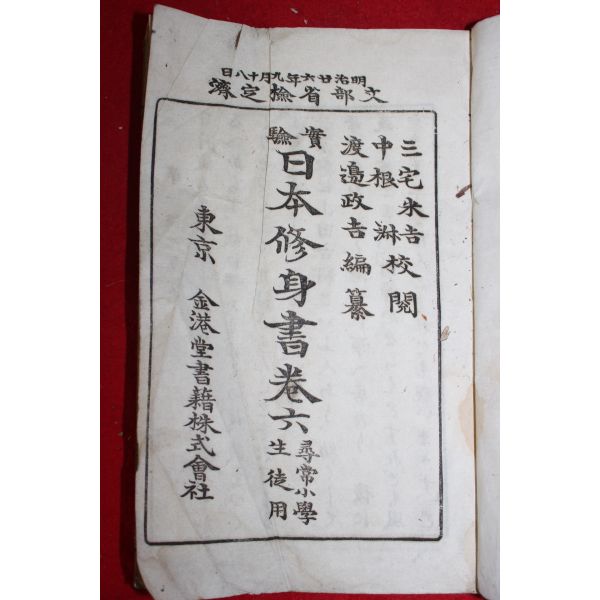 明治廿六年九月十八日
文部省檢定濟
三宅米吉
中根淑校閲
渡邉政吉編纂
實驗
日本修身書卷六
尋常小學
生徒用
東京 金港堂書籍株式會社